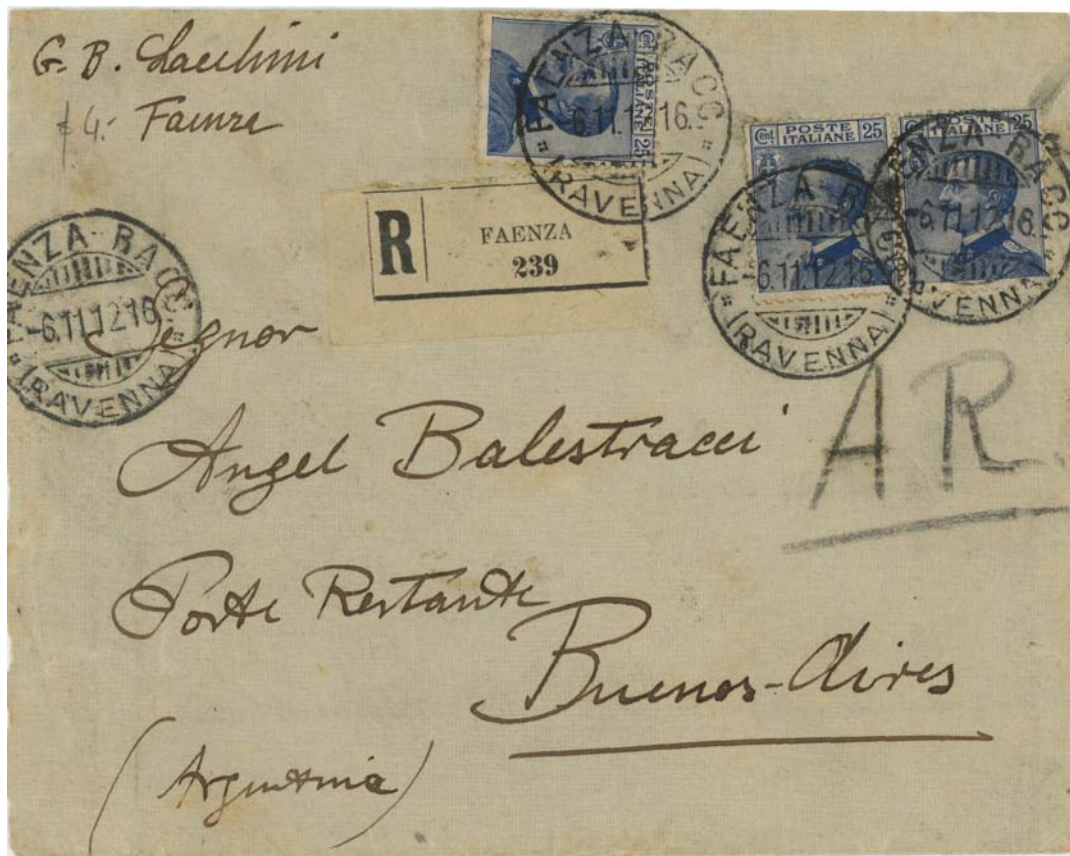 G. B. Lacchini
Faenza
Cent. POSTE ITALIANE 25
FAENZA RACC.
6.11.12 16
(RAVENNA)
R FAENZA
239
Cent. POSTE ITALIANE 25
Cent. POSTE ITALIANE 25
FAENZA RACC.
-6.11.12.16
(RAVENNA)
FAENZA RACC.
-6.11.12.16.
(RAVENNA)
FAENZA RACC.
-6.11.12.16
(RAVENNA)
Segnor
AR.
Angel Balestracci
Poste Restante
Buenos-Aires
(Argentina)